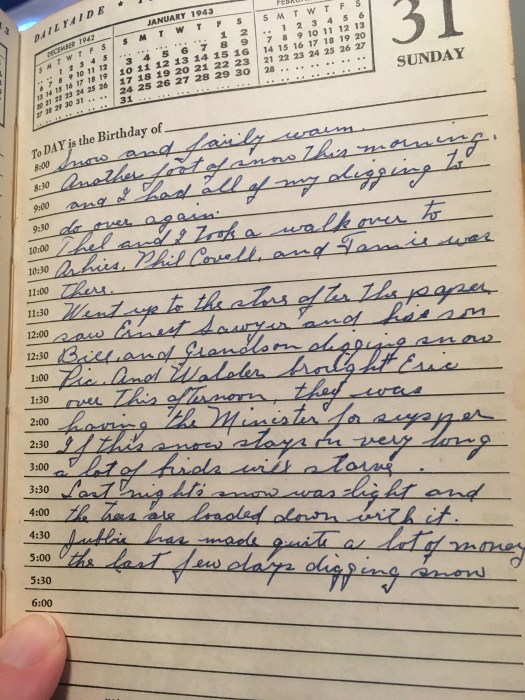 DAILYAIDE ★
DECEMBER 1942
S M T W T F S
. . 1 2 3 4 5
6 7 8 9 10 11 12
13 14 15 16 17 18 19
20 21 22 23 24 25 26
27 28 29 30 31 . .
JANUARY 1943
S M T W T F S
. . . . . 1 2
3 4 5 6 7 8 9
10 11 12 13 14 15 16
17 18 19 20 21 22 23
24 25 26 27 28 29 30
31 . . . . . .
S M T W T F S
. 1 2 3 4 5 6
7 8 9 10 11 12 13
14 15 16 17 18 19 20
21 22 23 24 25 26 27
28 . . . . . .
31
SUNDAY
To DAY is the Birthday of
8:00 Snow and fairly warm.
8:30 Another foot of snow this morning,
9:00 and I had all of my digging to
9:30 do over again.
10:00 Thel and I took a walk over to
10:30 Archies, Phil Covell, and was
11:00 there.
11:30 Went up to the store after the paper
12:00 saw Ernest Sawyer and his son
12:30 Bill, and Grandson digging snow
1:00 Pic. And Walder brought Eric
1:30 over this afternoon, they was
2:00 having the Minister for supper
2:30 If this snow stays on very long
3:00 a lot of birds will starve.
3:30 Last night's snow was light and
4:00 the trees are loaded down with it.
4:30 Jubbie has made quite a lot of money
5:00 the last few days digging snow
5:30
6:00